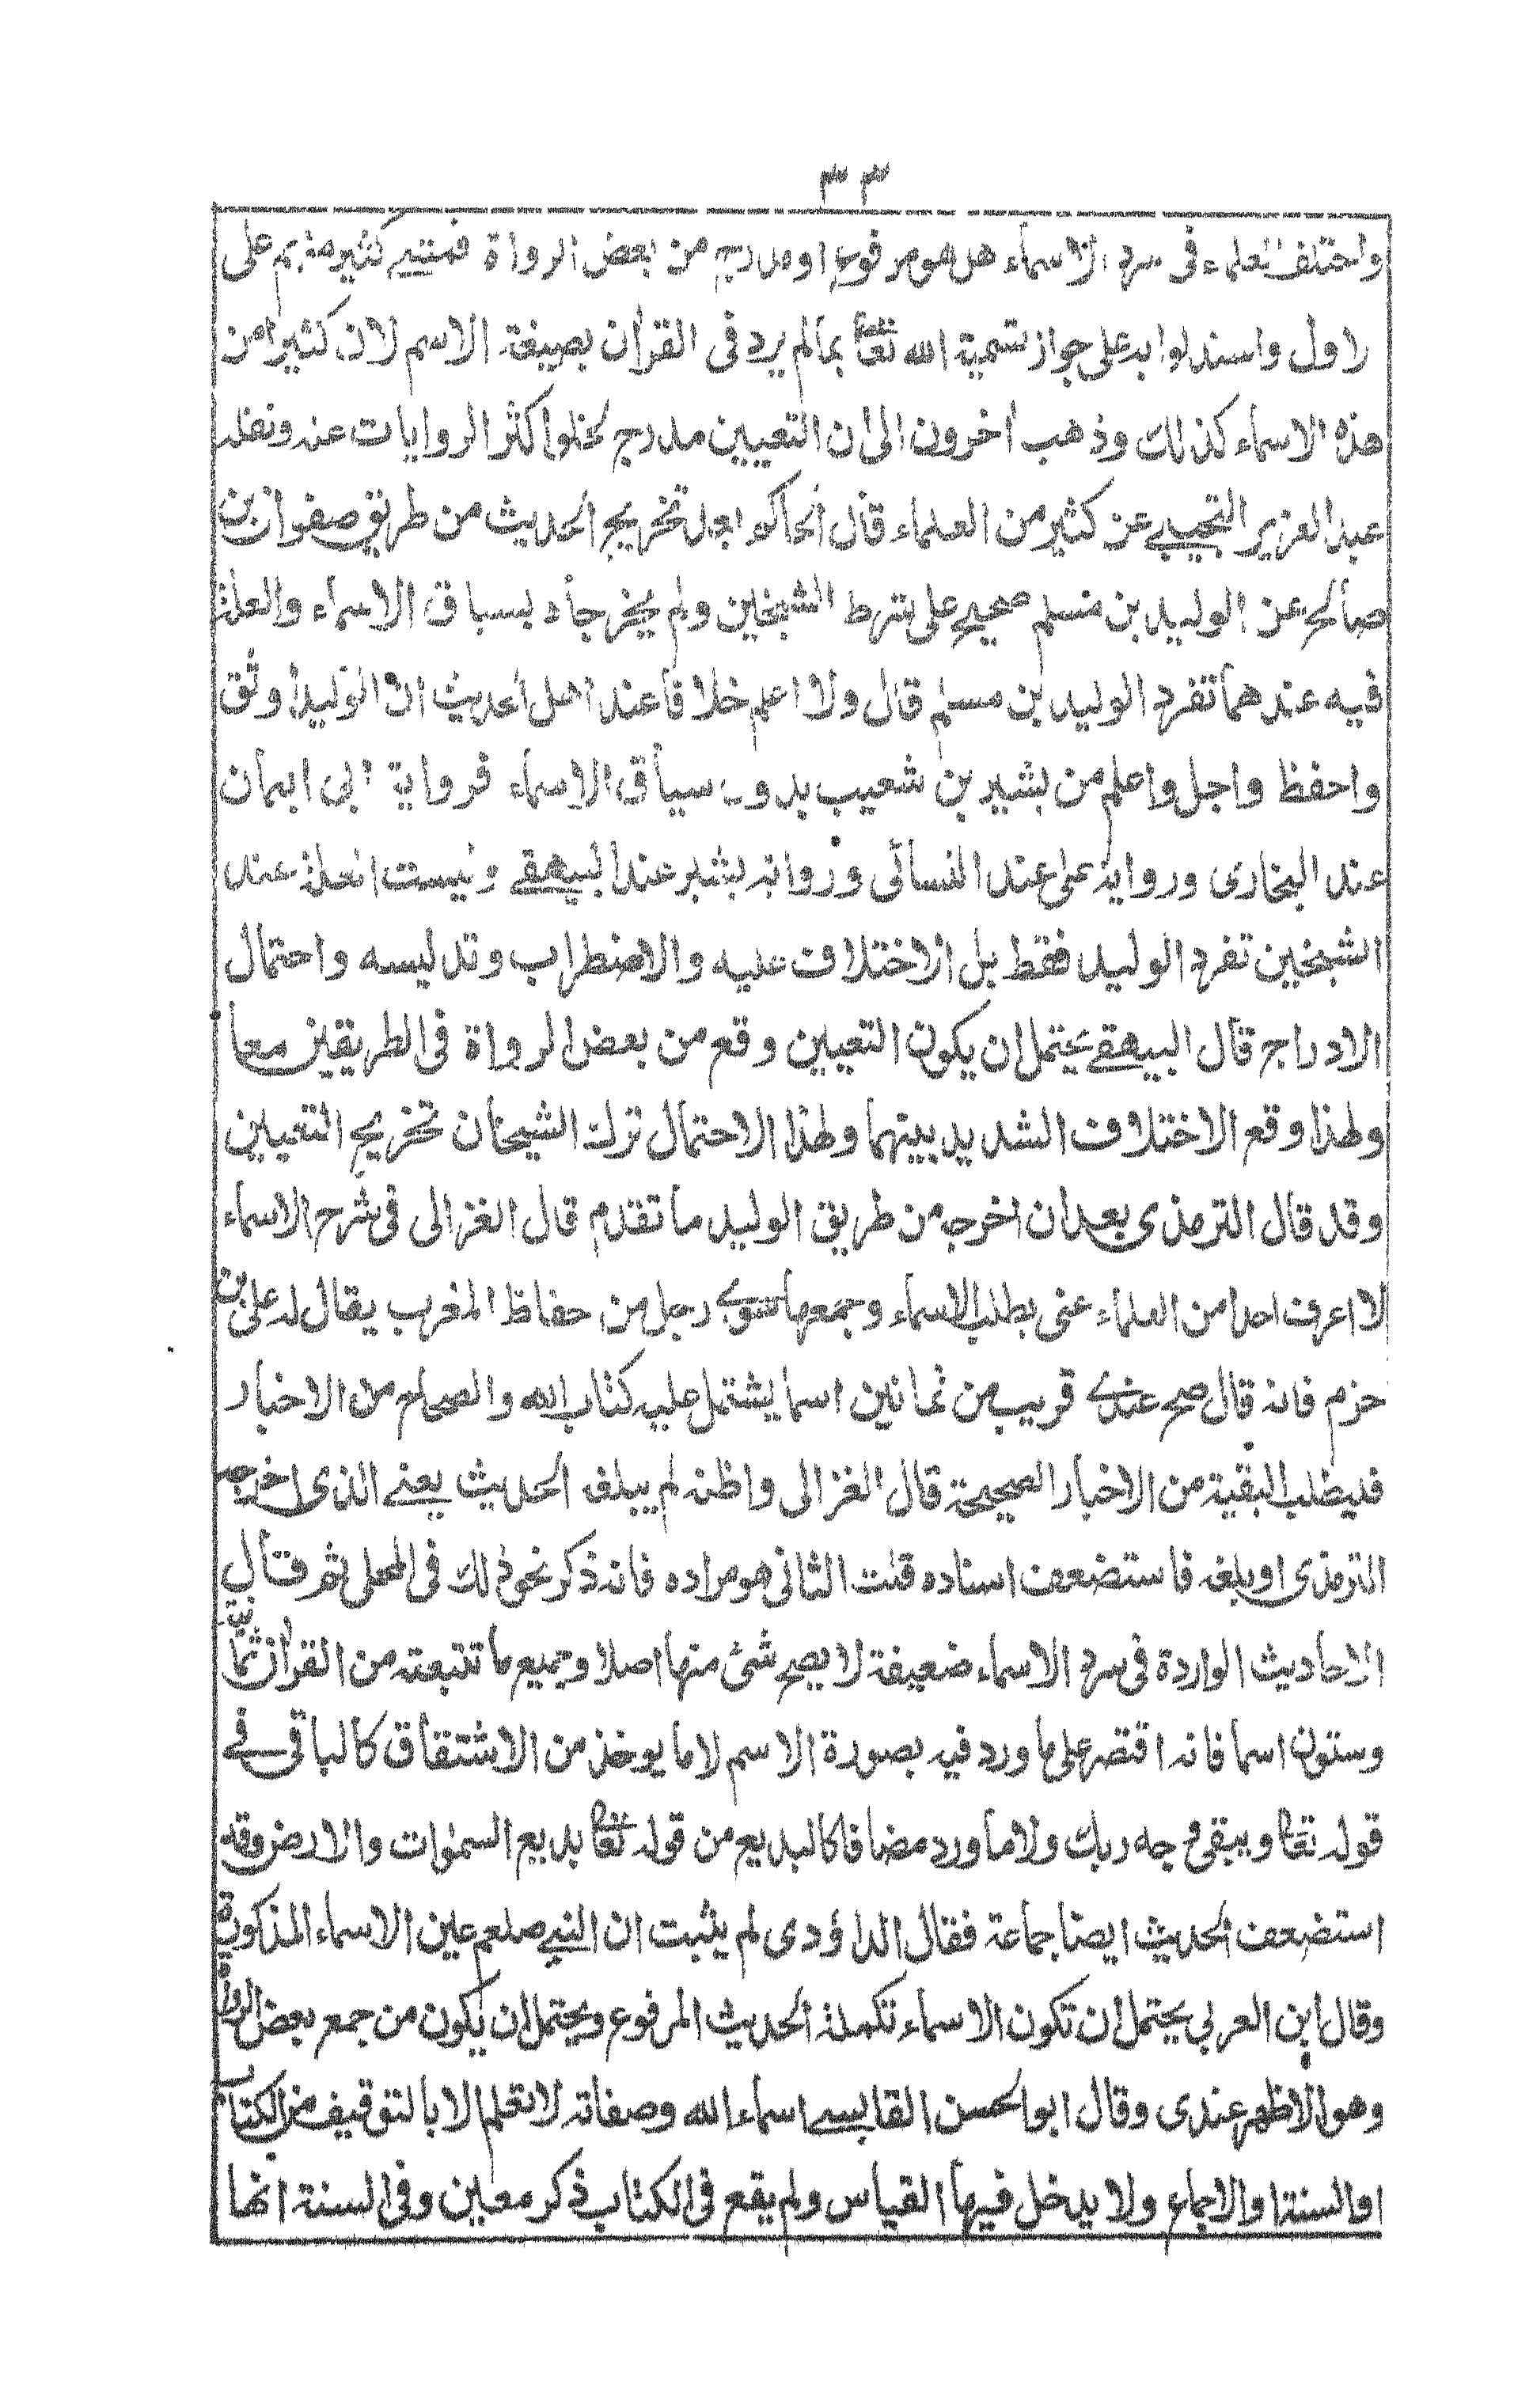 ٣٣
واختلف العلماء فى سرد الاسماء هل هو مرفوع او مدرج من بعض الرواة فمشى كثير منهم على
لاول واستدلوا به على جواز تسمية الله تعالى بما لم يرد فى القرأن بصيغة الاسم لان كثيرا من
هذه الاسماء كذلك وذهب اخرون الى ان التعيين مدرج لخلو اكثر الروايات عنه ونقله
عبد العزيز النخشبى عن كثير من العلماء قال الحاكم بعد تخريج الحديث من طريق صفوان بن
صالح عن الوليد بن مسلم صحيح على شرط الشيخين ولم يخرجاه بسياق الاسماء والعلة
فيه عندهما تفرد الوليد بن مسلم قال ولا اعلم خلافا عند اهل الحديث ان الوليد اوثق
واحفظ واجل واعلم من بشير بن شعيب بدون سياق الاسماء فرواية ابى ايمان
عند البخارى ورواية على عند النسائى ورواية بشير عند البيهقى وليست العلة عند
الشيخين تفرد الوليد فقط بل الاختلاف عليه والاضطراب وتدليسه واحتمال
الادراج قال البيهقى يحتمل ان يكون التعيين وقع من بعض الرواة فى الطريقين معا
ولهذا وقع الاختلاف الشديد بينهما ولهذا الاحتمال ترك الشيخان تخريج التعيين
وقد قال الترمذى بعد ان اخرجه من طريق الوليد ما تقدم قال الغزالى فى شرح الاسماء
لا اعرف احدا من العلماء عنى بطلب الاسماء وجمعها سوى رجل من حفاظ المغرب يقال له على بن
حزم فانه قال صح عندى قريب من ثمانين اسما يشتمل عليه كتاب الله والصحاح من الاخبار
فليطلب البقية من الاخبار الصحيحة قال الغزالى واظنه لم يبلغه الحديث يعنى الذى اخرجه
الترمذى او بلغه فاستضعف اسناده قلت الثانى هو مراده فانه ذكر نحو ذلك فى المحلى ثم قال
الاحاديث الواردة فى سرد الاسماء ضعيفة لا يصح شئ منها اصلا وجميع ما تتبعته من القرأن ثمانية
وستون اسما فانه اقتصر على ما ورد فيه بصورة الاسم لا ما يوخذ من الاشتقاق كالباقى فى
قوله تعا ويبقى وجه ربك ولا ما ورد مضافا كالبديع من قوله تعا بديع السموات والارض وقد
استضعف الحديث ايضا جماعة فقال الداؤدى لم يثبت ان النبى صلعم عين الاسماء المذكورة
وقال ابن العربى يحتمل ان تكون الاسماء تكملة الحديث المرفوع ويحتمل ان يكون من جمع بعض الرواة
وهو الاظهر عندى وقال ابو الحسن القابسى اسماء الله وصفاته لا تعلم الا بالتوقيف من الكتاب
او السنة او الاجماع ولا يدخل فيها القياس ولم يقع فى الكتاب ذكر معين وفى السنة انها